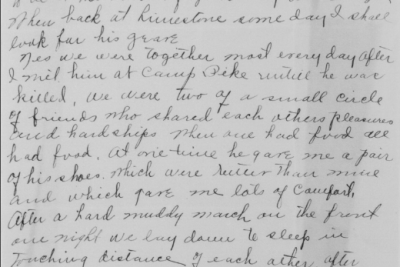 When back at Limestone some day I shall
look for his grave
Yes we were together most every day after
I met him at Camp Pike until he was
killed, we were two of a small circle
of friends who shared each others pleasures
and hardships when one had food all
had food. At one time he gave me a pair
of his shoes. which were better than mine
and which gave me lots of Comfort,
After a hard muddy march on the front
one night we lay down to sleep in
touching distance of each other after